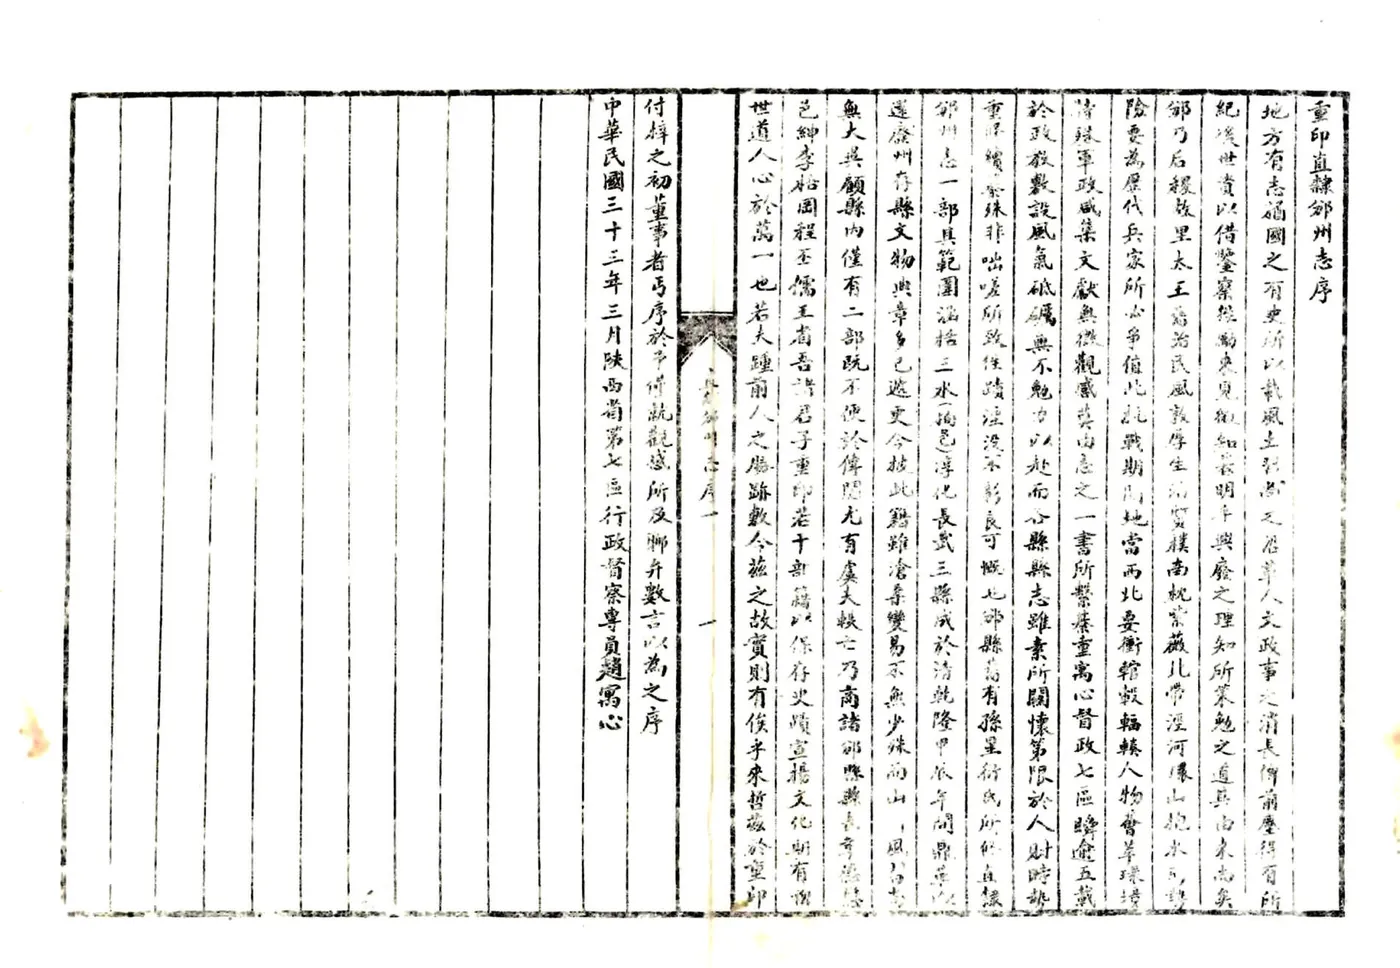 重印直隸邠州志序
地方有志猶國之有史所以載風土習尚之沿革人文政事之消長俾前塵得有所
紀後世資以借鑒察往勘來見微知著明乎興廢之理知所策勉之道其由來尚矣
邠乃后稷故里太王舊治民風敦厚生活質樸南枕紫薇北帶涇河環山抱水形勢
險要為歷代兵家所必爭值此抗戰期間地當西北要衝輨轂輻輳人物薈萃
清殊軍政咸集文獻無徵觀感莫由志之一書所繫綦重寓心督政七區瞬逾五載
於政教敷設風氣砥礪無不勉力以赴而各縣縣志雖素所關懷第限於人財時勢
重脩續纂殊非咄嗟所致往蹟湮沒不彰良可慨也邠縣舊有孫星衍氏所修直隸
邠州志一部其範圍涵括三水(栒邑)淳化長武三縣成於清乾隆甲辰年間鼎革以
還廢州存縣文物典章多已遞更今披此籍雖滄桑變易不無少殊而山川風俗尚
無大異顧縣內僅有二部既不便於傳閱尤有虞夫軼亡乃商諸邠縣縣長
邑紳李柏岡程丕儒王省吾諸君子重印若十部籍以保存史蹟宣揚文化期有裨
世道人心於萬一也若夫踵前人之勝跡敷今茲之故實則有俟乎來哲茲於重印
付梓之初董事者丐序於予得執觀感所及聊弁數言以為之序
中華民國三十三年三月陝西省第七區行政督察專員趙寓心
邠州志序一
一